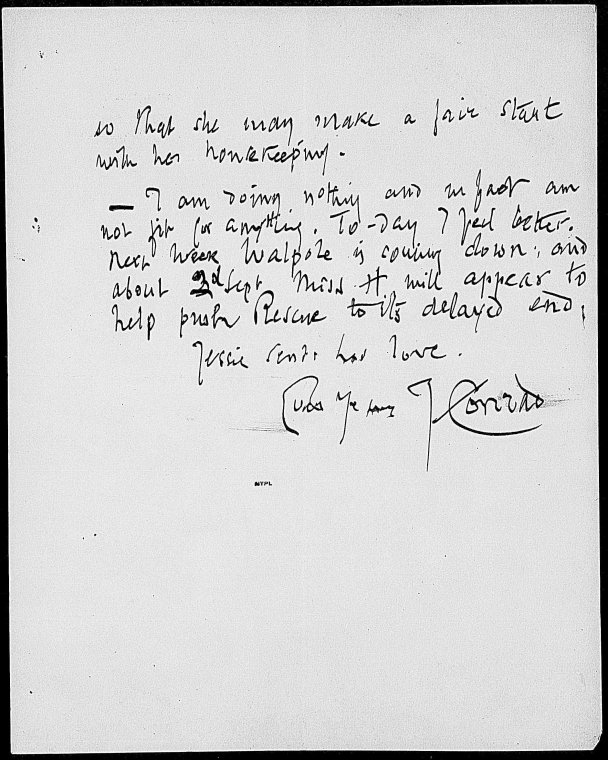 so that she may make a fair start
with her housekeeping.
— I am doing nothing and in fact am
not fit for anything. To-day I feel better.
Next week Walpole is coming down; and
about 2d Sept Miss H. will appear to
help push Rescue to its delayed end.
Jessie sends her love.
J. Conrad
NYPL